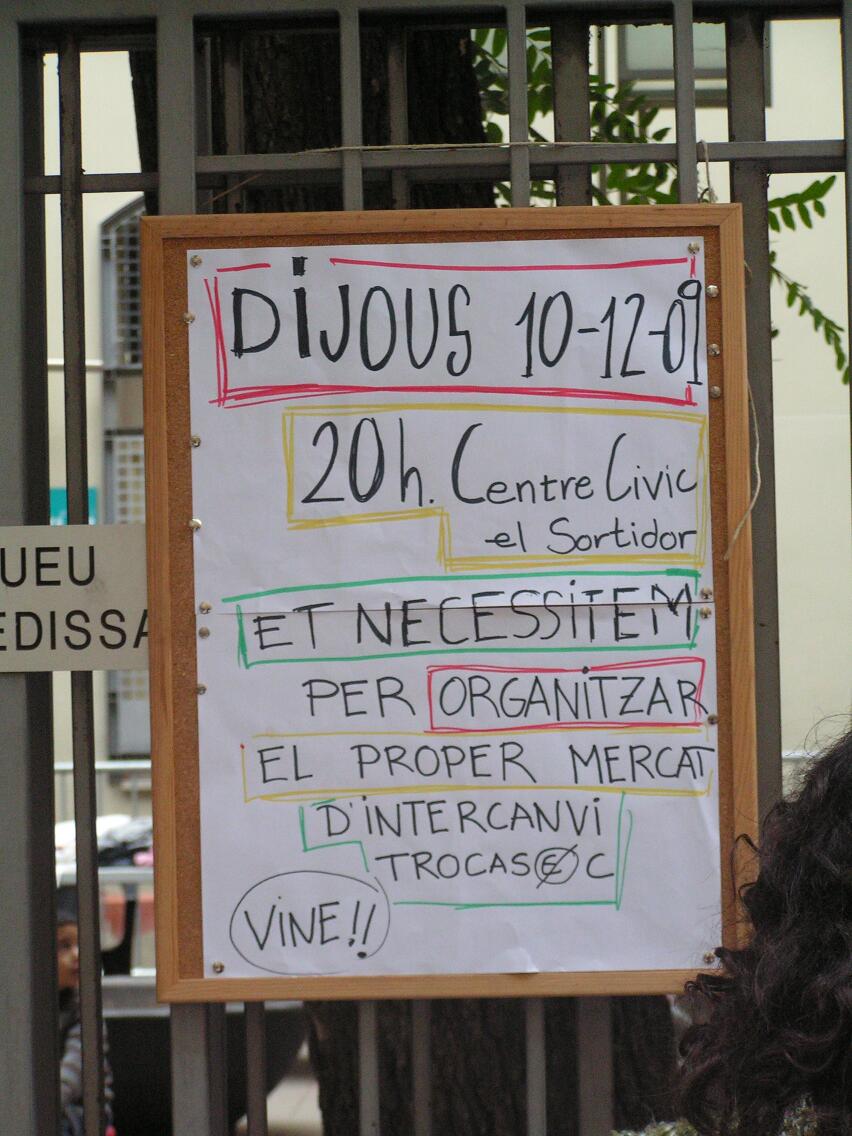 DiJOUS 10-12-09
20h. Centre Civic
el Sortidor
ET NECESSiTEM
PER ORGANiTZAR
EL PROPER MERCAT
D'iNTERCANVi
TROCASEC
ViNE!!
UEU
EDISSA